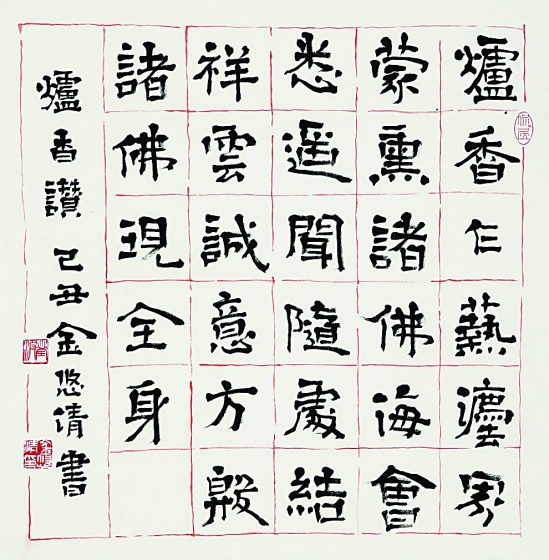 爐香乍爇灋界
蒙熏諸佛海會
悉遥聞隨處結
祥雲誠意方殷
諸佛現全身
爐香讚 己丑金悠清書